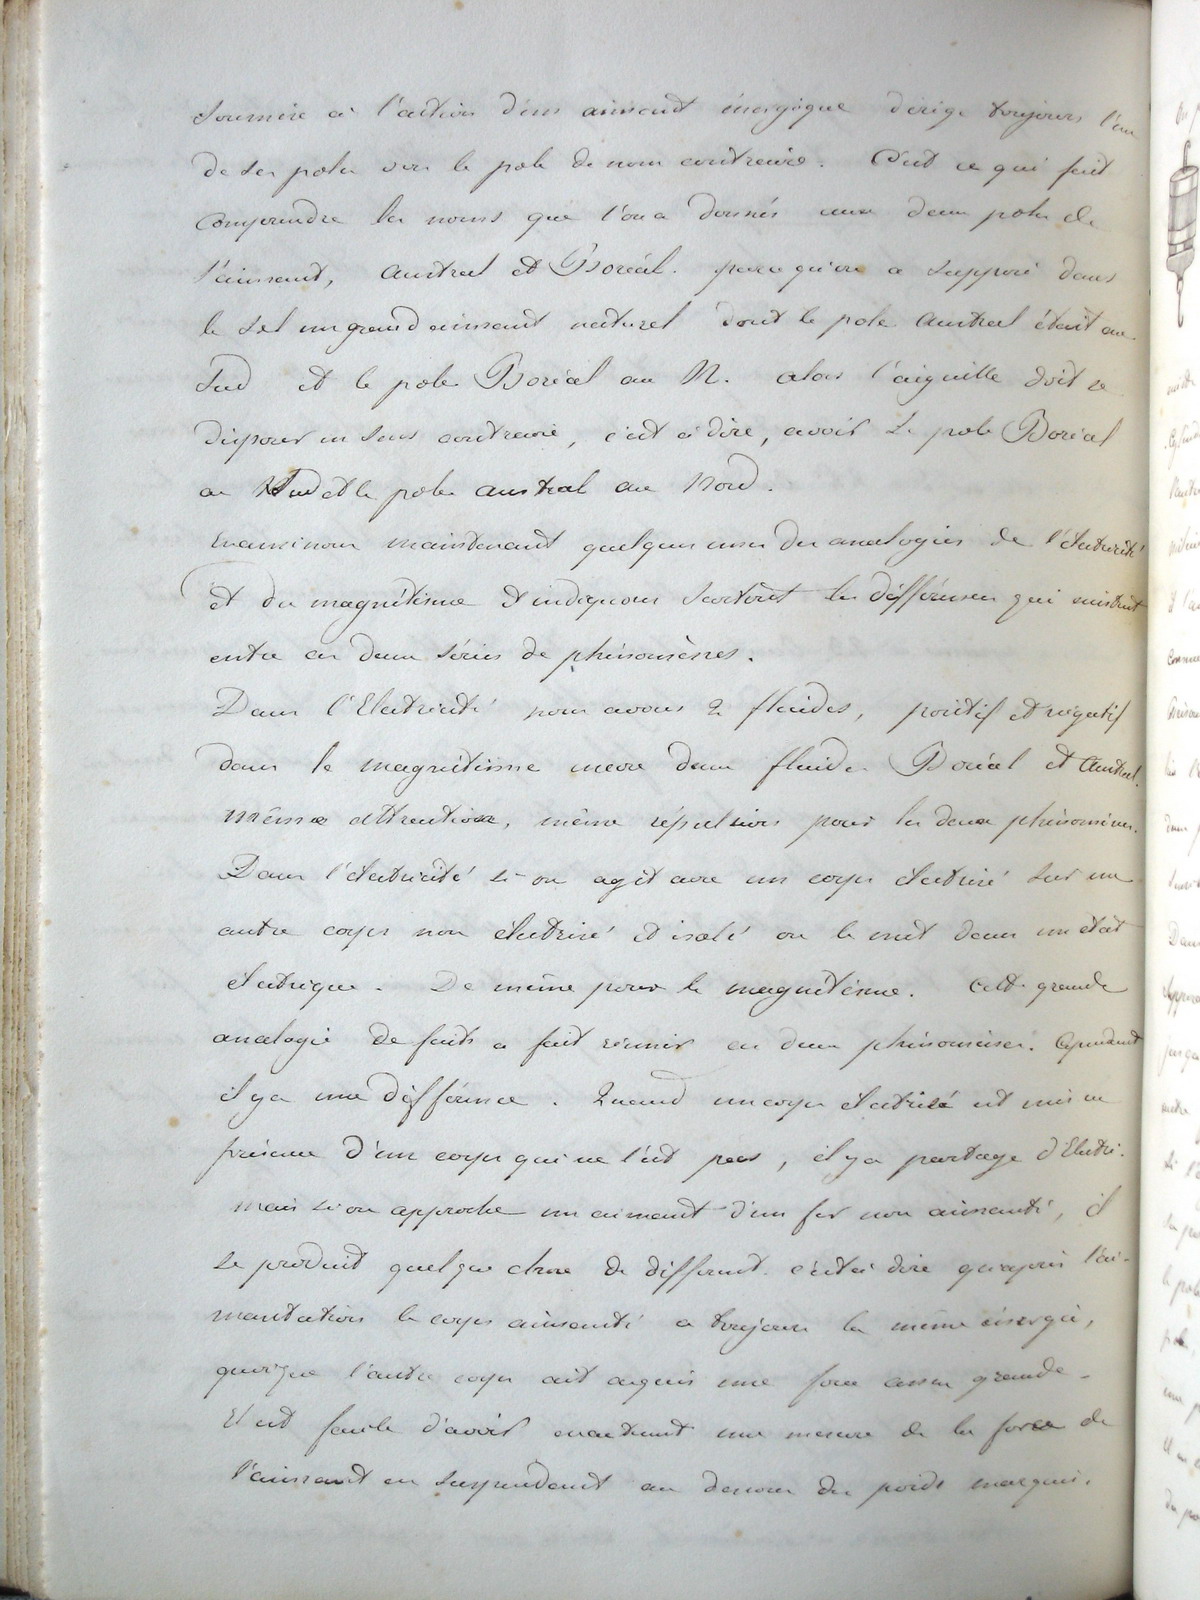 soumise à l'action d'un aimant énergique dirige toujours l'un
de ses poles vers le pole de nom contraire. C'est ce qui fait
comprendre les noms que l'on a donnés aux deux poles de
l'aimant, Austral et Boréal. parce qu'on a supposé dans
le sol un grand aimant naturel dont le pole Austral était au
Sud et le pole Boréal au N. alors l'aiguille doit se
disposer en sens contraire, c'est à dire, avoir le pole Boréal
au Sud et le pole austral au Nord.
Examinons maintenant quelques unes des analogies de l'électricité
et du magnétisme et indiquons surtout les différences qui existent
entre ces deux séries de phénomènes.
Dans l'Electricité nous avons 2 fluides, positif et négatif
dans le magnétisme encore deux fluides Boréal et Austral.
même attraction, même répulsion pour les deux phénomènes.
Dans l'électricité si on agit avec un corps électrisé sur un
autre corps non électrisé et isolé on le met dans un état
électrique. De même pour le magnétisme. Cette grande
analogie de faits a fait réunir ces deux phénomènes. Cependant
il y a une différence. Quand un corps électrisé est mis en
présence d'un corps qui ne l'est pas, il y a partage d'Electri.
mais si on approche un aimant d'un fer non aimanté, il
se produit quelque chose de différent. c'est à dire qu'après l'ai-
mantation le corps aimanté a toujours la même énergie,
quoique l'autre corps ait acquis une force assez grande.
Il est facile d'avoir exactement une mesure de la force de
l'aimant en suspendant au dessous des poids marqués.